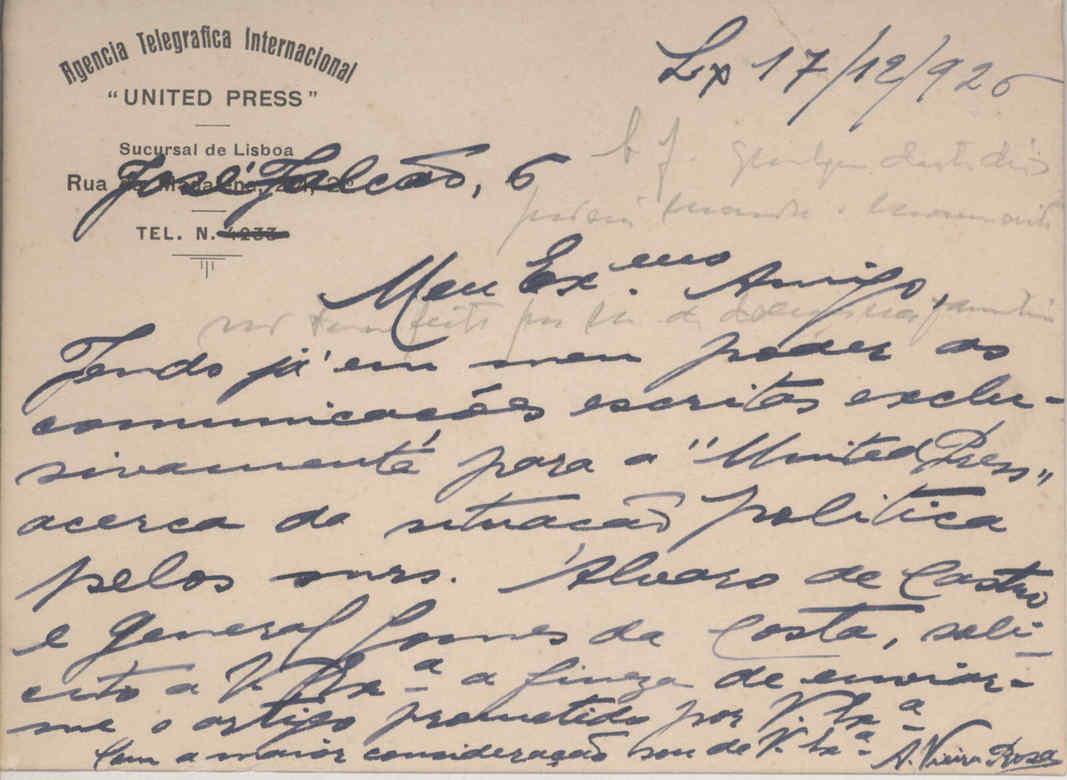 Agencia Telegrafica Internacional
"UNITED PRESS"
Sucursal de Lisboa
Rua
José Falcão, 6
TEL. N. 4233
Lx 17/12/925
Meu Exᵐᵒ. Amigo,
Tendo já em meu poder as
comunicações escritas exclu-
sivamente para a "United Press"
acerca da situação politica
pelos snrs. Álvaro de Castro
e General Gomes da Costa, soli-
cito a V. Exª a fineza de enviar-
me o artigo prometido por V. Exª
Com a maior consideração sou de V. Exª. A. Vieira Rosa